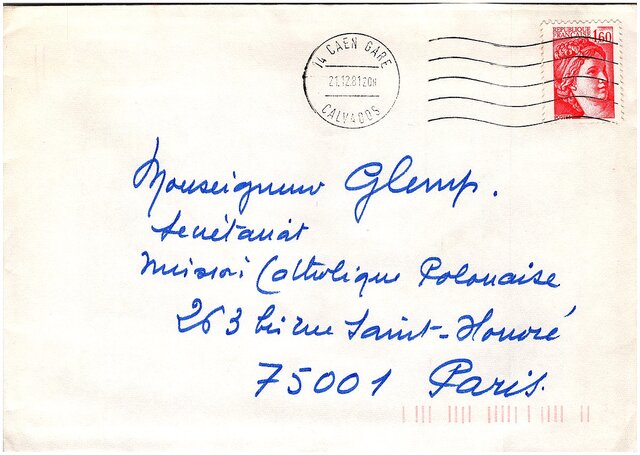 14 CAEN GARE
21.12.81 20H
CALVADOS
REPUBLIQUE
FRANCAISE
1,60
Monseigneur Glemp.
Secrétariat
Mission Catholique Polonaise
263 bis rue Saint-Honoré
75001 Paris.